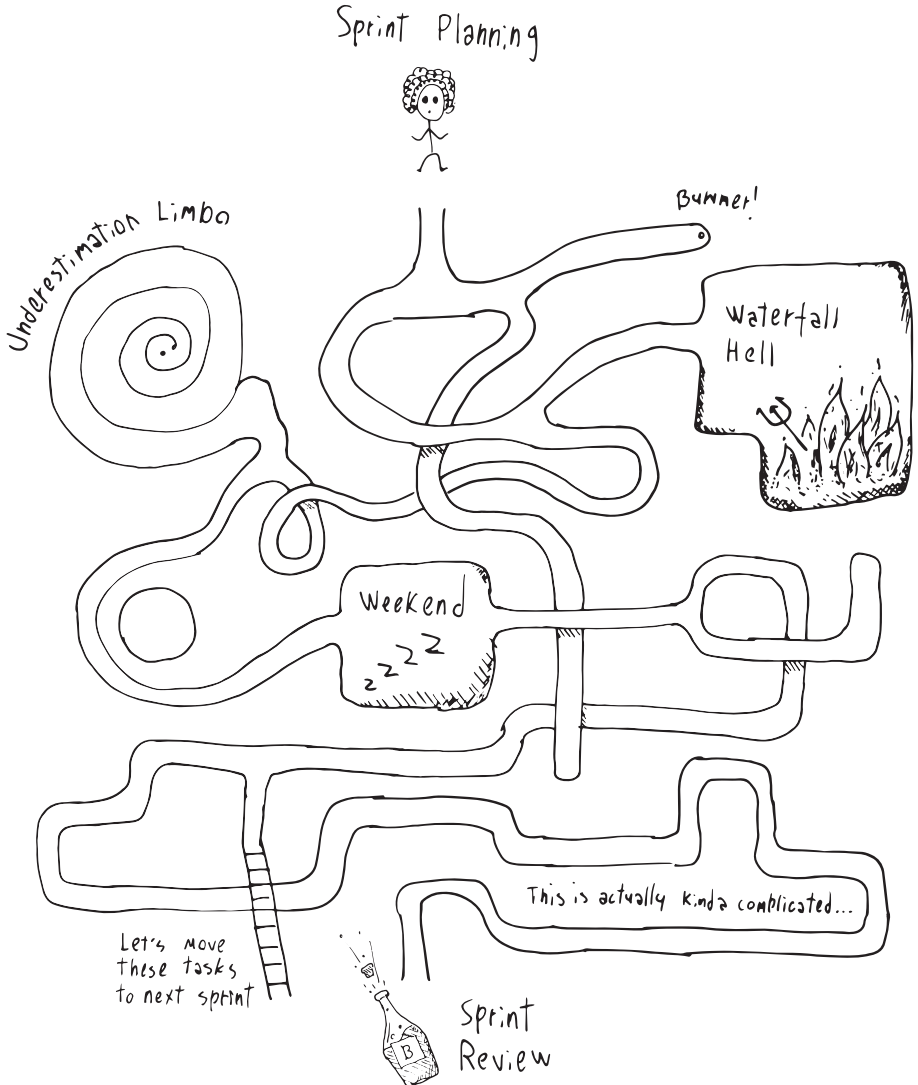 Sprint Planning
Underestimation Limbo
Bummer!
Waterfall
Hell
Weekend
z z z z
This is actually kinda complicated...
Let's move
these tasks
to next sprint
B
Sprint
Review